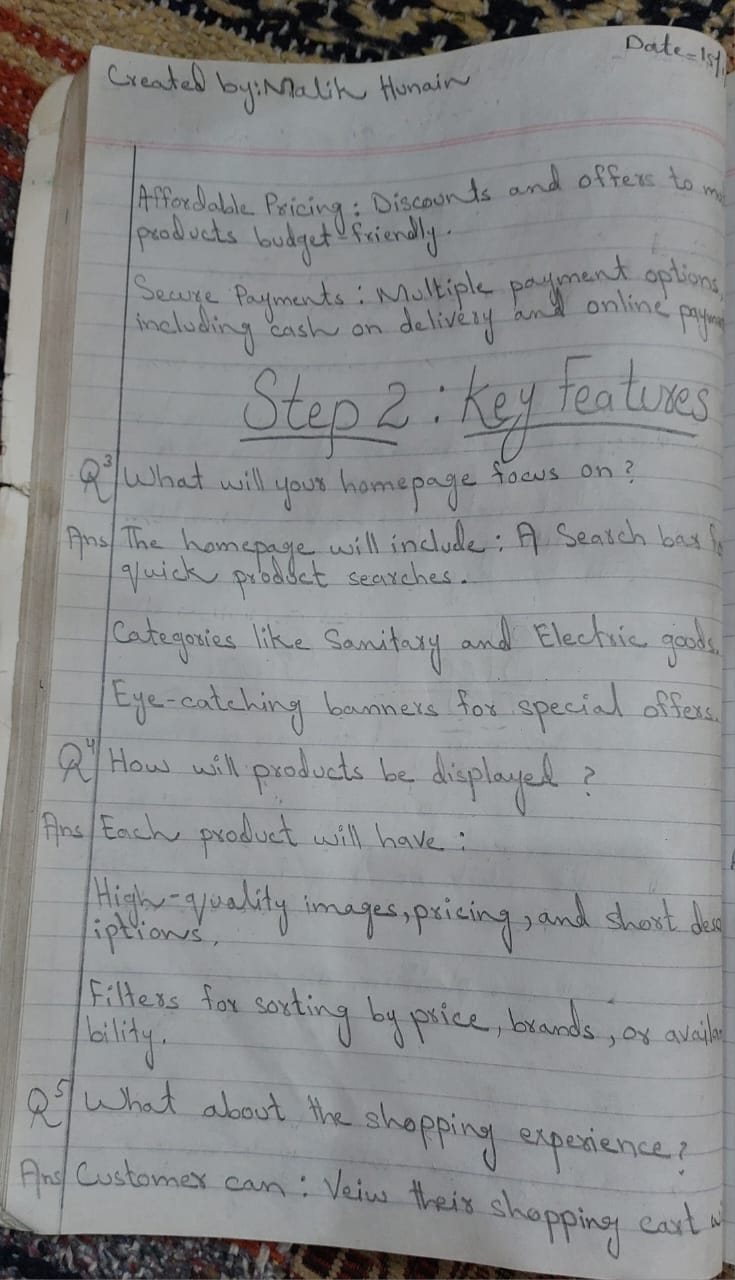 Created by: Malik Hunain
Date = 1st
Affordable Pricing: Discounts and offers to
products budget-friendly.
Secure Payments: Multiple payment options,
including cash on delivery and online
Step 2: Key Features
Q3 What will your homepage focus on?
Ans The homepage will include: A Search bar
quick product searches.
Categories like Sanitary and Electric goods.
Eye-catching banners for special offers.
Q4 How will products be displayed?
Ans Each product will have:
High-quality images, pricing, and short desc
iptions.
Filters for sorting by price, brands, or availa
bility.
Q5 What about the shopping experience?
Ans Customer can: Veiw their shopping cart